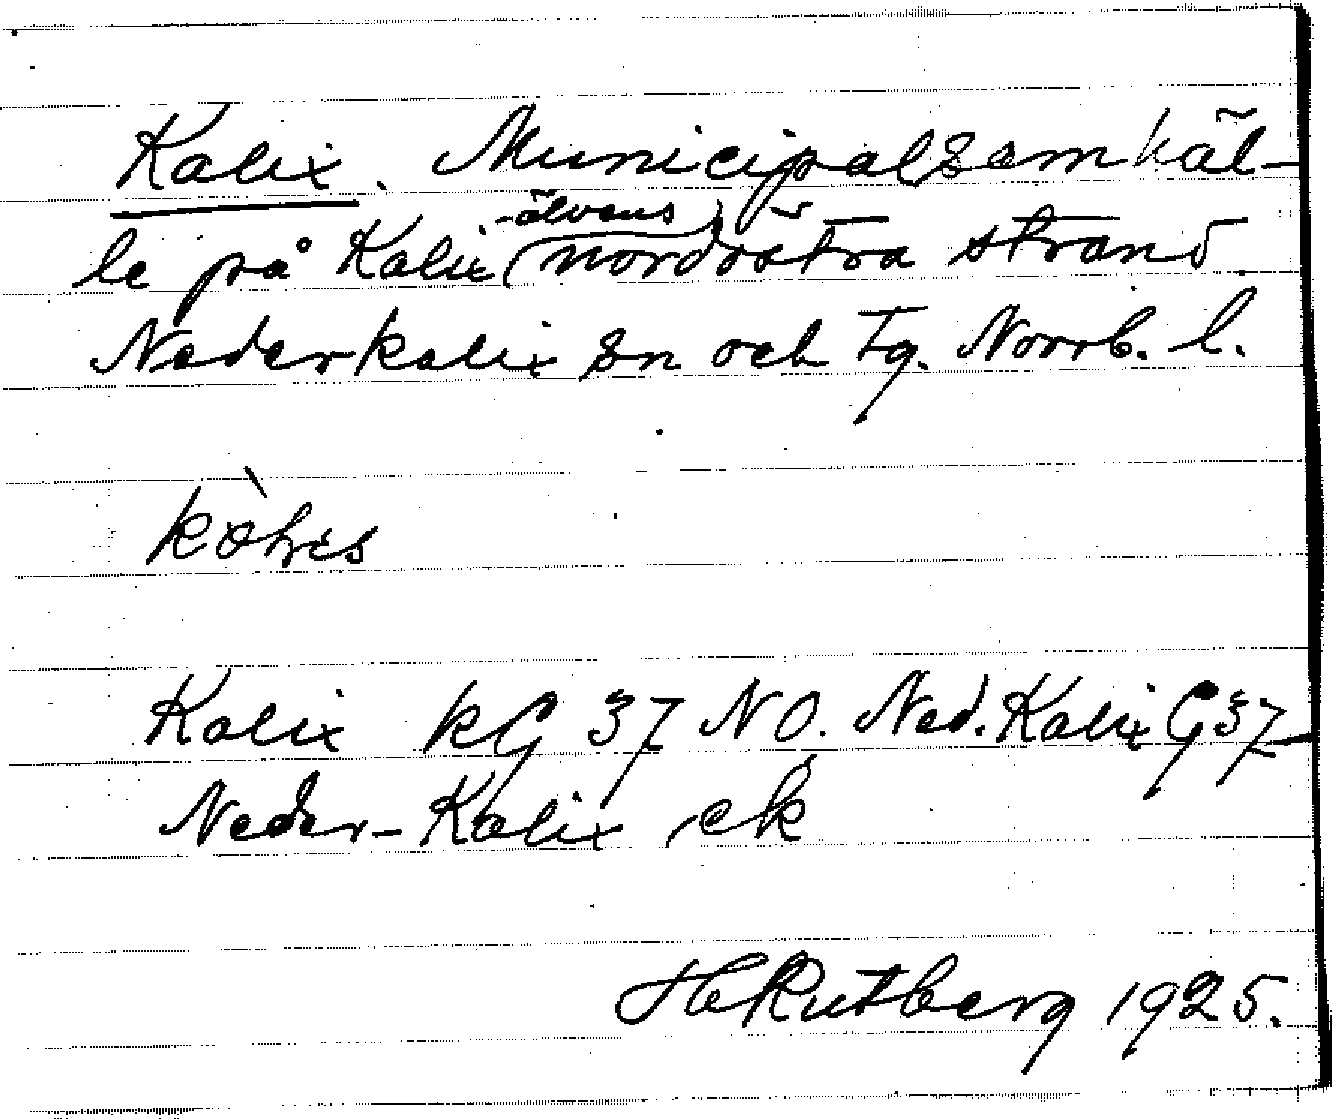 Kalix. Municipalsamhäl-
le på Kalixälvens nordöstra strand
Nederkalix sn och tg. Norrb. l.
Kalix kG 37 NO. Ned. Kalix G 37
Neder-Kalix, ek
H Rutberg 1925.